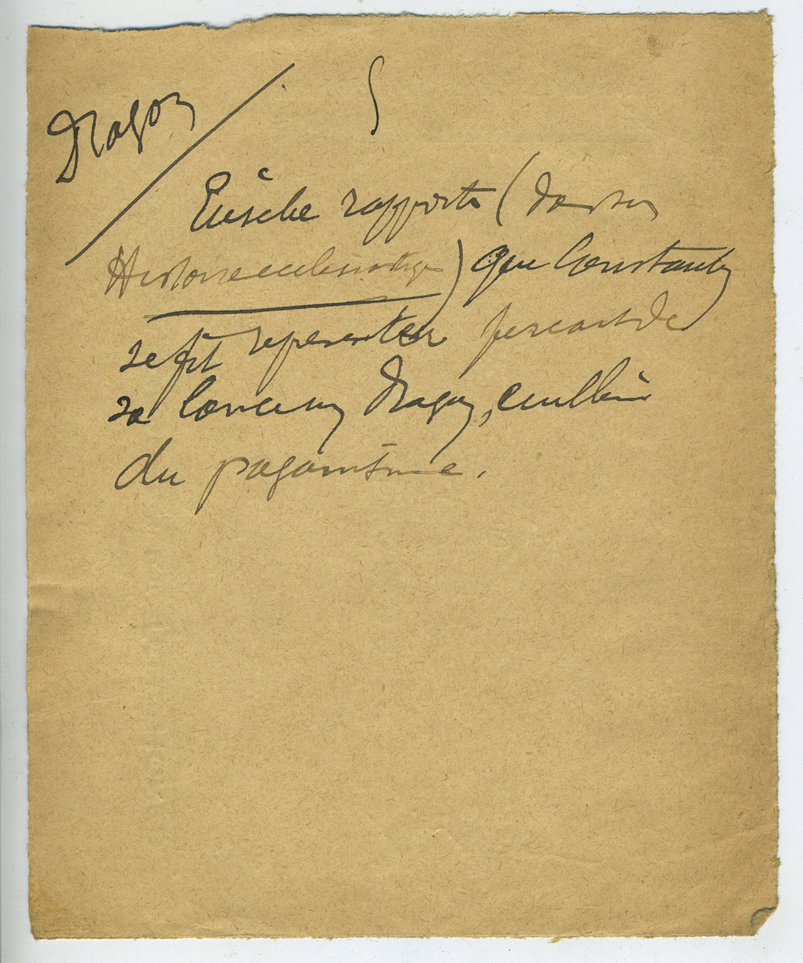 Dragon
Eusèbe rapporte (dans son
Histoire ecclésiastique) que Constantin
se fit representer percant de
sa lance un dragon, emblème
du paganisme.